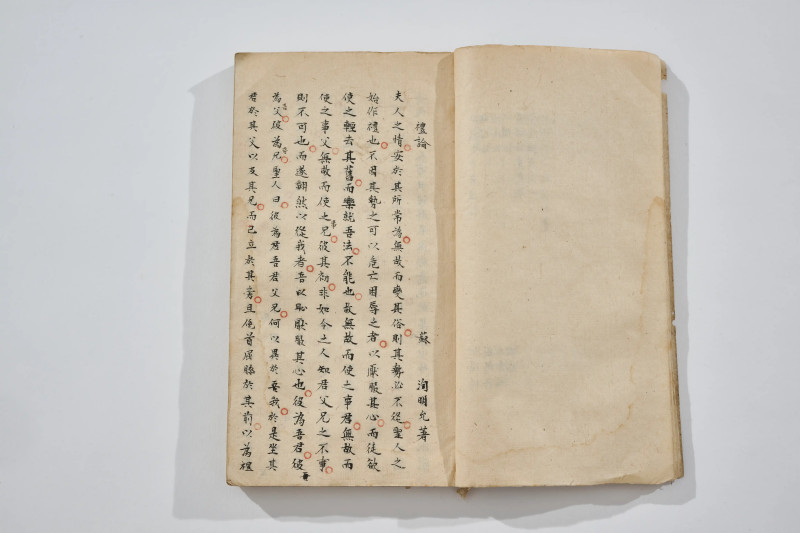 禮論 蘇洵明允著
夫人之情安於其所常為無故而變其俗則其勢必不從聖人之
始作禮也不因其勢之可以危亡困辱之者以厭服其心而徒欲
使之輕去其舊而樂就吾法不能也故無故而使之事君無故而
使之事父無故而使之事兄彼其初非如今之人知君父兄之不事
則不可也而遂翻然以從我者吾以恥厭服其心也彼為吾君彼
為吾父彼為吾兄聖人曰彼為君吾君父兄何以異於我於是坐其
君於其父以及其兄而己立於其旁且俛首屈膝於其前以為禮